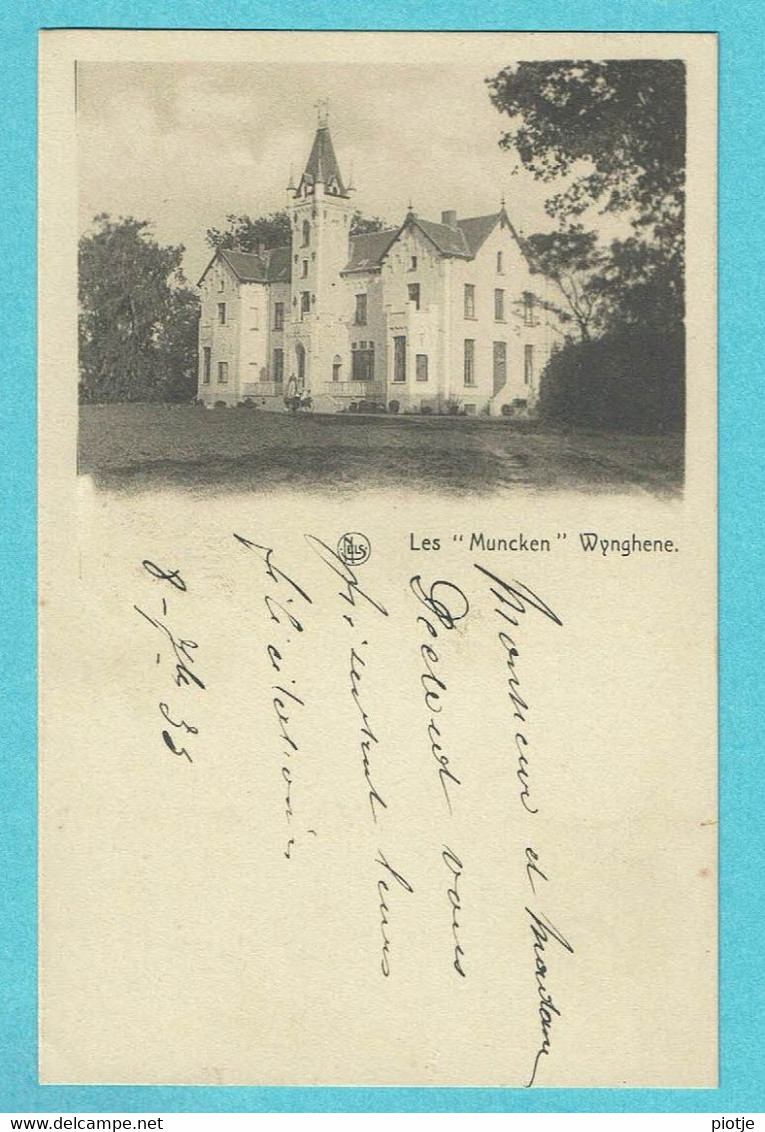 NELS
Les "Muncken" Wynghene.
Monsieur et Madame
vous
présentent leurs
félicitations
8-7bre 35
piotje
DELCAMPE.NET